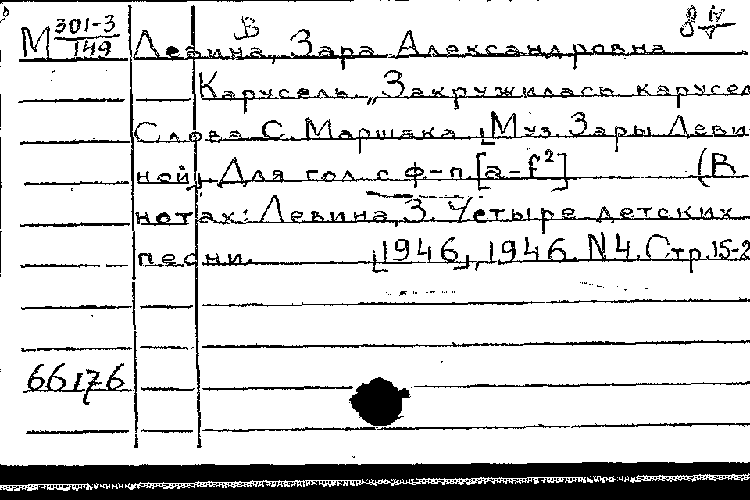 М 301-3/149 Левина, Зара Александровна
Карусель. „Закружилась карусел
Слова С. Маршака. [Муз. Зары Леви
ной]. Для гол. с ф-п. [a-f²] (В
нотах: Левина, З. Четыре детских
песни. [1946], 1946. N4. Стр. 15-2
66176